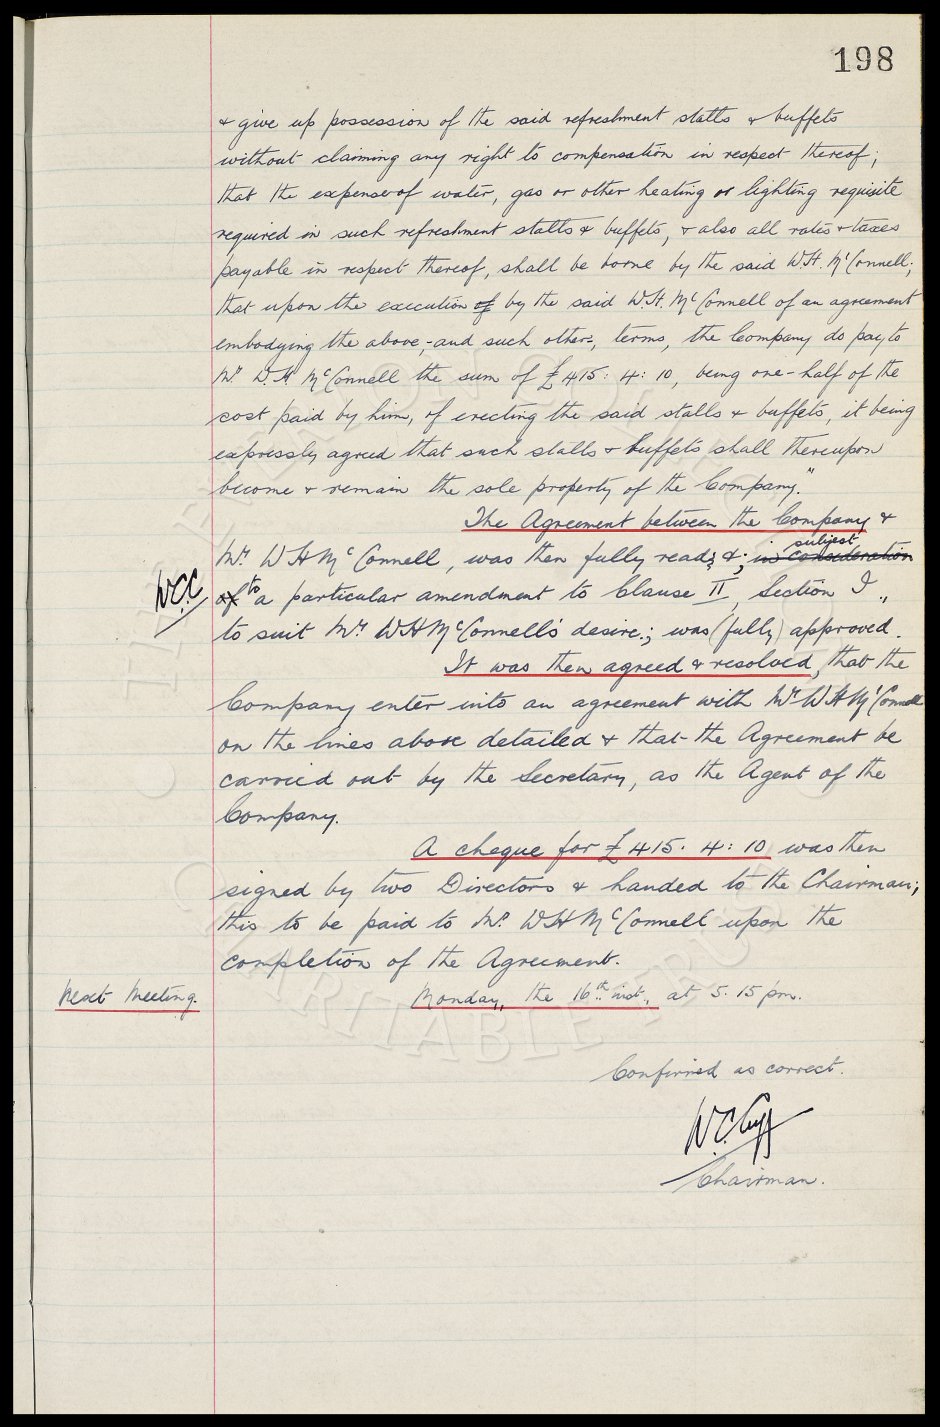 198
& give up possession of the said refreshment stalls & buffets
without claiming any right to compensation in respect thereof;
that the expense of water, gas or other heating or lighting requisite
required in such refreshment stalls & buffets, & also all rates & taxes
payable in respect thereof, shall be borne by the said W.H. McConnell;
that upon the execution of by the said W.H. McConnell of an agreement
embodying the above,-and such other-, terms, the Company do pay to
Mr. W.H McConnell the sum of £415: 4: 10, being one-half of the
cost paid by him, of erecting the said stalls & buffets, it being
expressly agreed that such stalls & buffets shall thereupon
become & remain the sole property of the Company."
The Agreement between the Company &
Mr. W H McConnell, was then fully read; &; in consideration subject
WCC
of to a particular amendment to Clause II, Section I.,
to suit Mr. W H McConnell's desire.; was (fully) approved.
It was then agreed & resolved, that the
Company enter into an agreement with Mr. W H McConnell
on the lines above detailed & that the Agreement be
carried out by the Secretary, as the Agent of the
Company.
A cheque for £415. 4: 10 was then
signed by two Directors & handed to the Chairman;
this to be paid to Mr. W H McConnell upon the
completion of the Agreement.
Next Meeting. Monday, the 16th inst., at 5.15 pm.
Confirmed as correct.
W.C. Cuff
Chairman.
THE EVERTON COLLECTION CHARITABLE TRUST